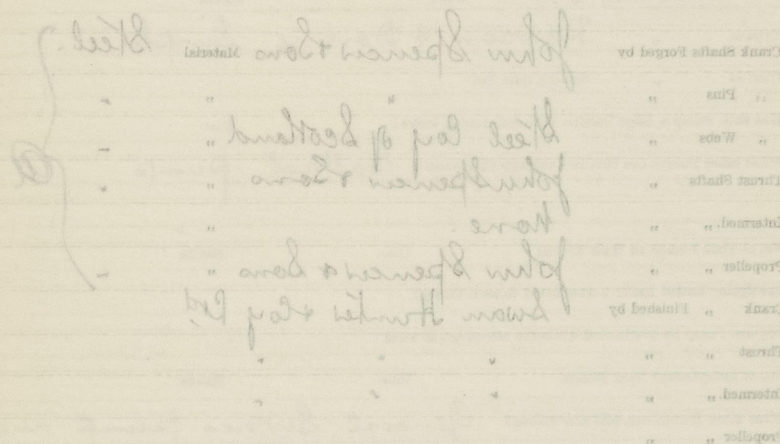 Crank Shafts Forged by John Spencer & Sons Material Steel
„ Pins „ „ „ „
„ Webs „ Steel Coy of Scotland „ „
Thrust Shafts „ John Spencer & Sons „ „
Intermed. „ „ None. „
Propeller „ „ John Spencer & Sons „ „
Crank „ Finished by Swan Hunter & Coy Ltd.
Thrust „ „ „ „ „
Intermed. „ „ „ „ „
Propeller „ „